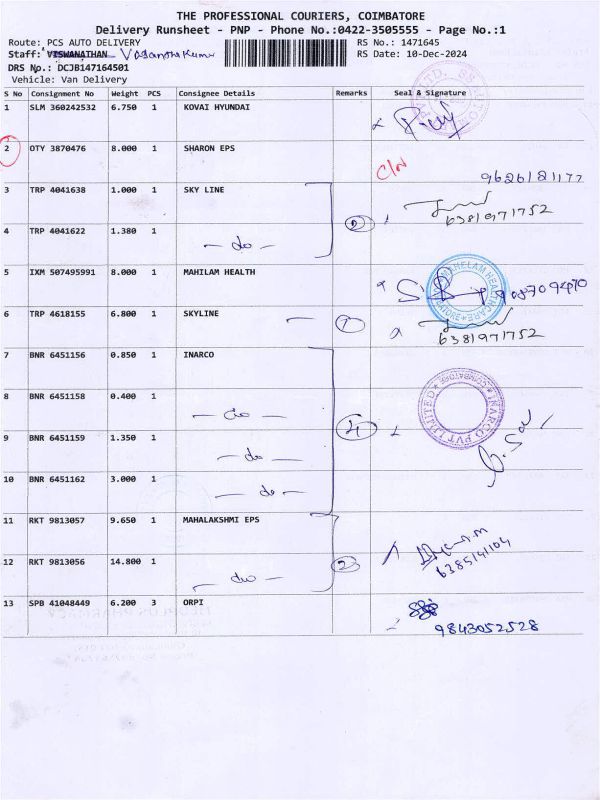 THE PROFESSIONAL COURIERS, COIMBATORE
Delivery Runsheet - PNP - Phone No.:0422-3505555 - Page No.:1
Route: PCS AUTO DELIVERY RS No.: 1471645
Staff: VISWANATHAN Vasantha Kumar RS Date: 10-Dec-2024
DRS No.: DCJB147164501
Vehicle: Van Delivery
S No Consignment No Weight PCS Consignee Details Remarks Seal & Signature
1 SLM 360242532 6.750 1 KOVAI HYUNDAI
2 OTY 3870476 8.000 1 SHARON EPS C/N 9626121177
3 TRP 4041638 1.000 1 SKY LINE 2 6381971752
4 TRP 4041622 1.380 1 - do -
5 IXM 507495991 8.000 1 MAHILAM HEALTH
6 TRP 4618155 6.800 1 SKYLINE 1 6381971752
7 BNR 6451156 0.850 1 INARCO
INARCO PVT LIMITED COIMBATORE
8 BNR 6451158 0.400 1 - do - 4
9 BNR 6451159 1.350 1 - do -
10 BNR 6451162 3.000 1 - do -
11 RKT 9813057 9.650 1 MAHALAKSHMI EPS
12 RKT 9813056 14.800 1 - do - 2 6385141104
13 SPB 41048449 6.200 3 ORPI
9843052528